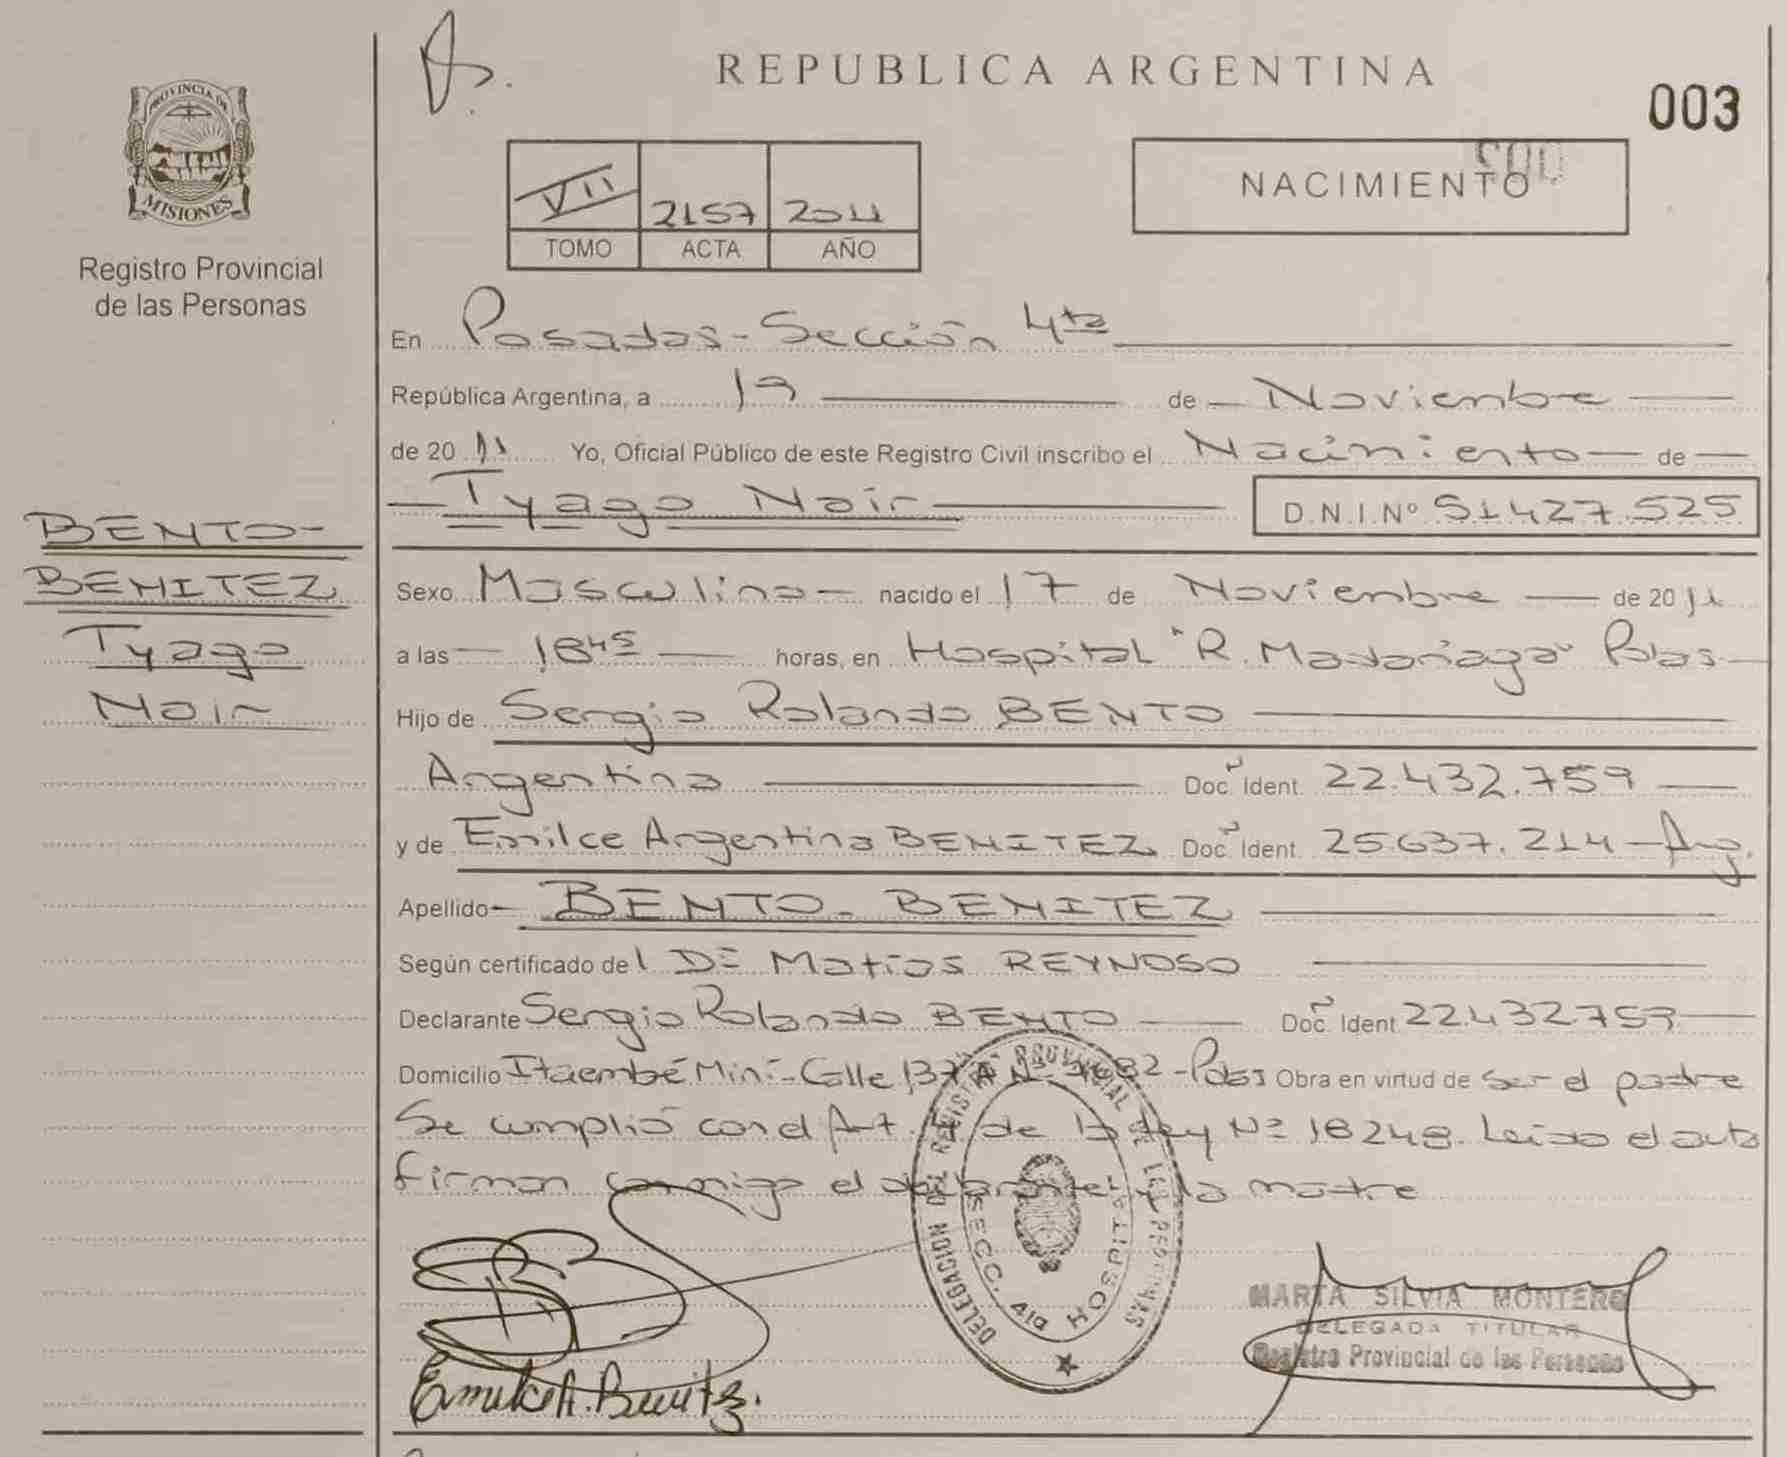 REPUBLICA ARGENTINA
003
PROVINCIA DE
MISIONES
Registro Provincial
de las Personas
VII 2157 2011
TOMO ACTA AÑO
NACIMIENTO
En Posadas - Sección 4ta
República Argentina, a 19 de Noviembre
de 2011 Yo, Oficial Público de este Registro Civil inscribo el Nacimiento de
Tyago Nair D.N.I.Nº 51427.525
BENTO-
BENITEZ
Tyago
Nair
Sexo Masculino nacido el 17 de Noviembre de 2011
a las 18 45 horas, en Hospital "R. Madariaga" Pdas.
Hijo de Sergio Rolando BENTO
Argentina Doc. Ident. 22.432.759
y de Emilce Argentina BENITEZ Doc. Ident. 25.637.214 - Arg.
Apellido BENTO - BENITEZ
Según certificado del Dr. Matías REYNOSO
Declarante Sergio Rolando BENTO Doc. Ident 22.432.759
Domicilio Itaembé Miní - Calle 137 A Nº - Pdas Obra en virtud de ser el padre
Se cumplió con el Art. 4 de la Ley Nº 18248. Leida el acta
firman conmigo el declarante y la madre
DELEGACION DEL REGISTRO PROVINCIAL DE LAS PERSONAS
SECC. 4ta HOSPITAL
Emilce A. Benitez.
MARTA SILVIA MONTERO
DELEGADA TITULAR
Registro Provincial de las Personas